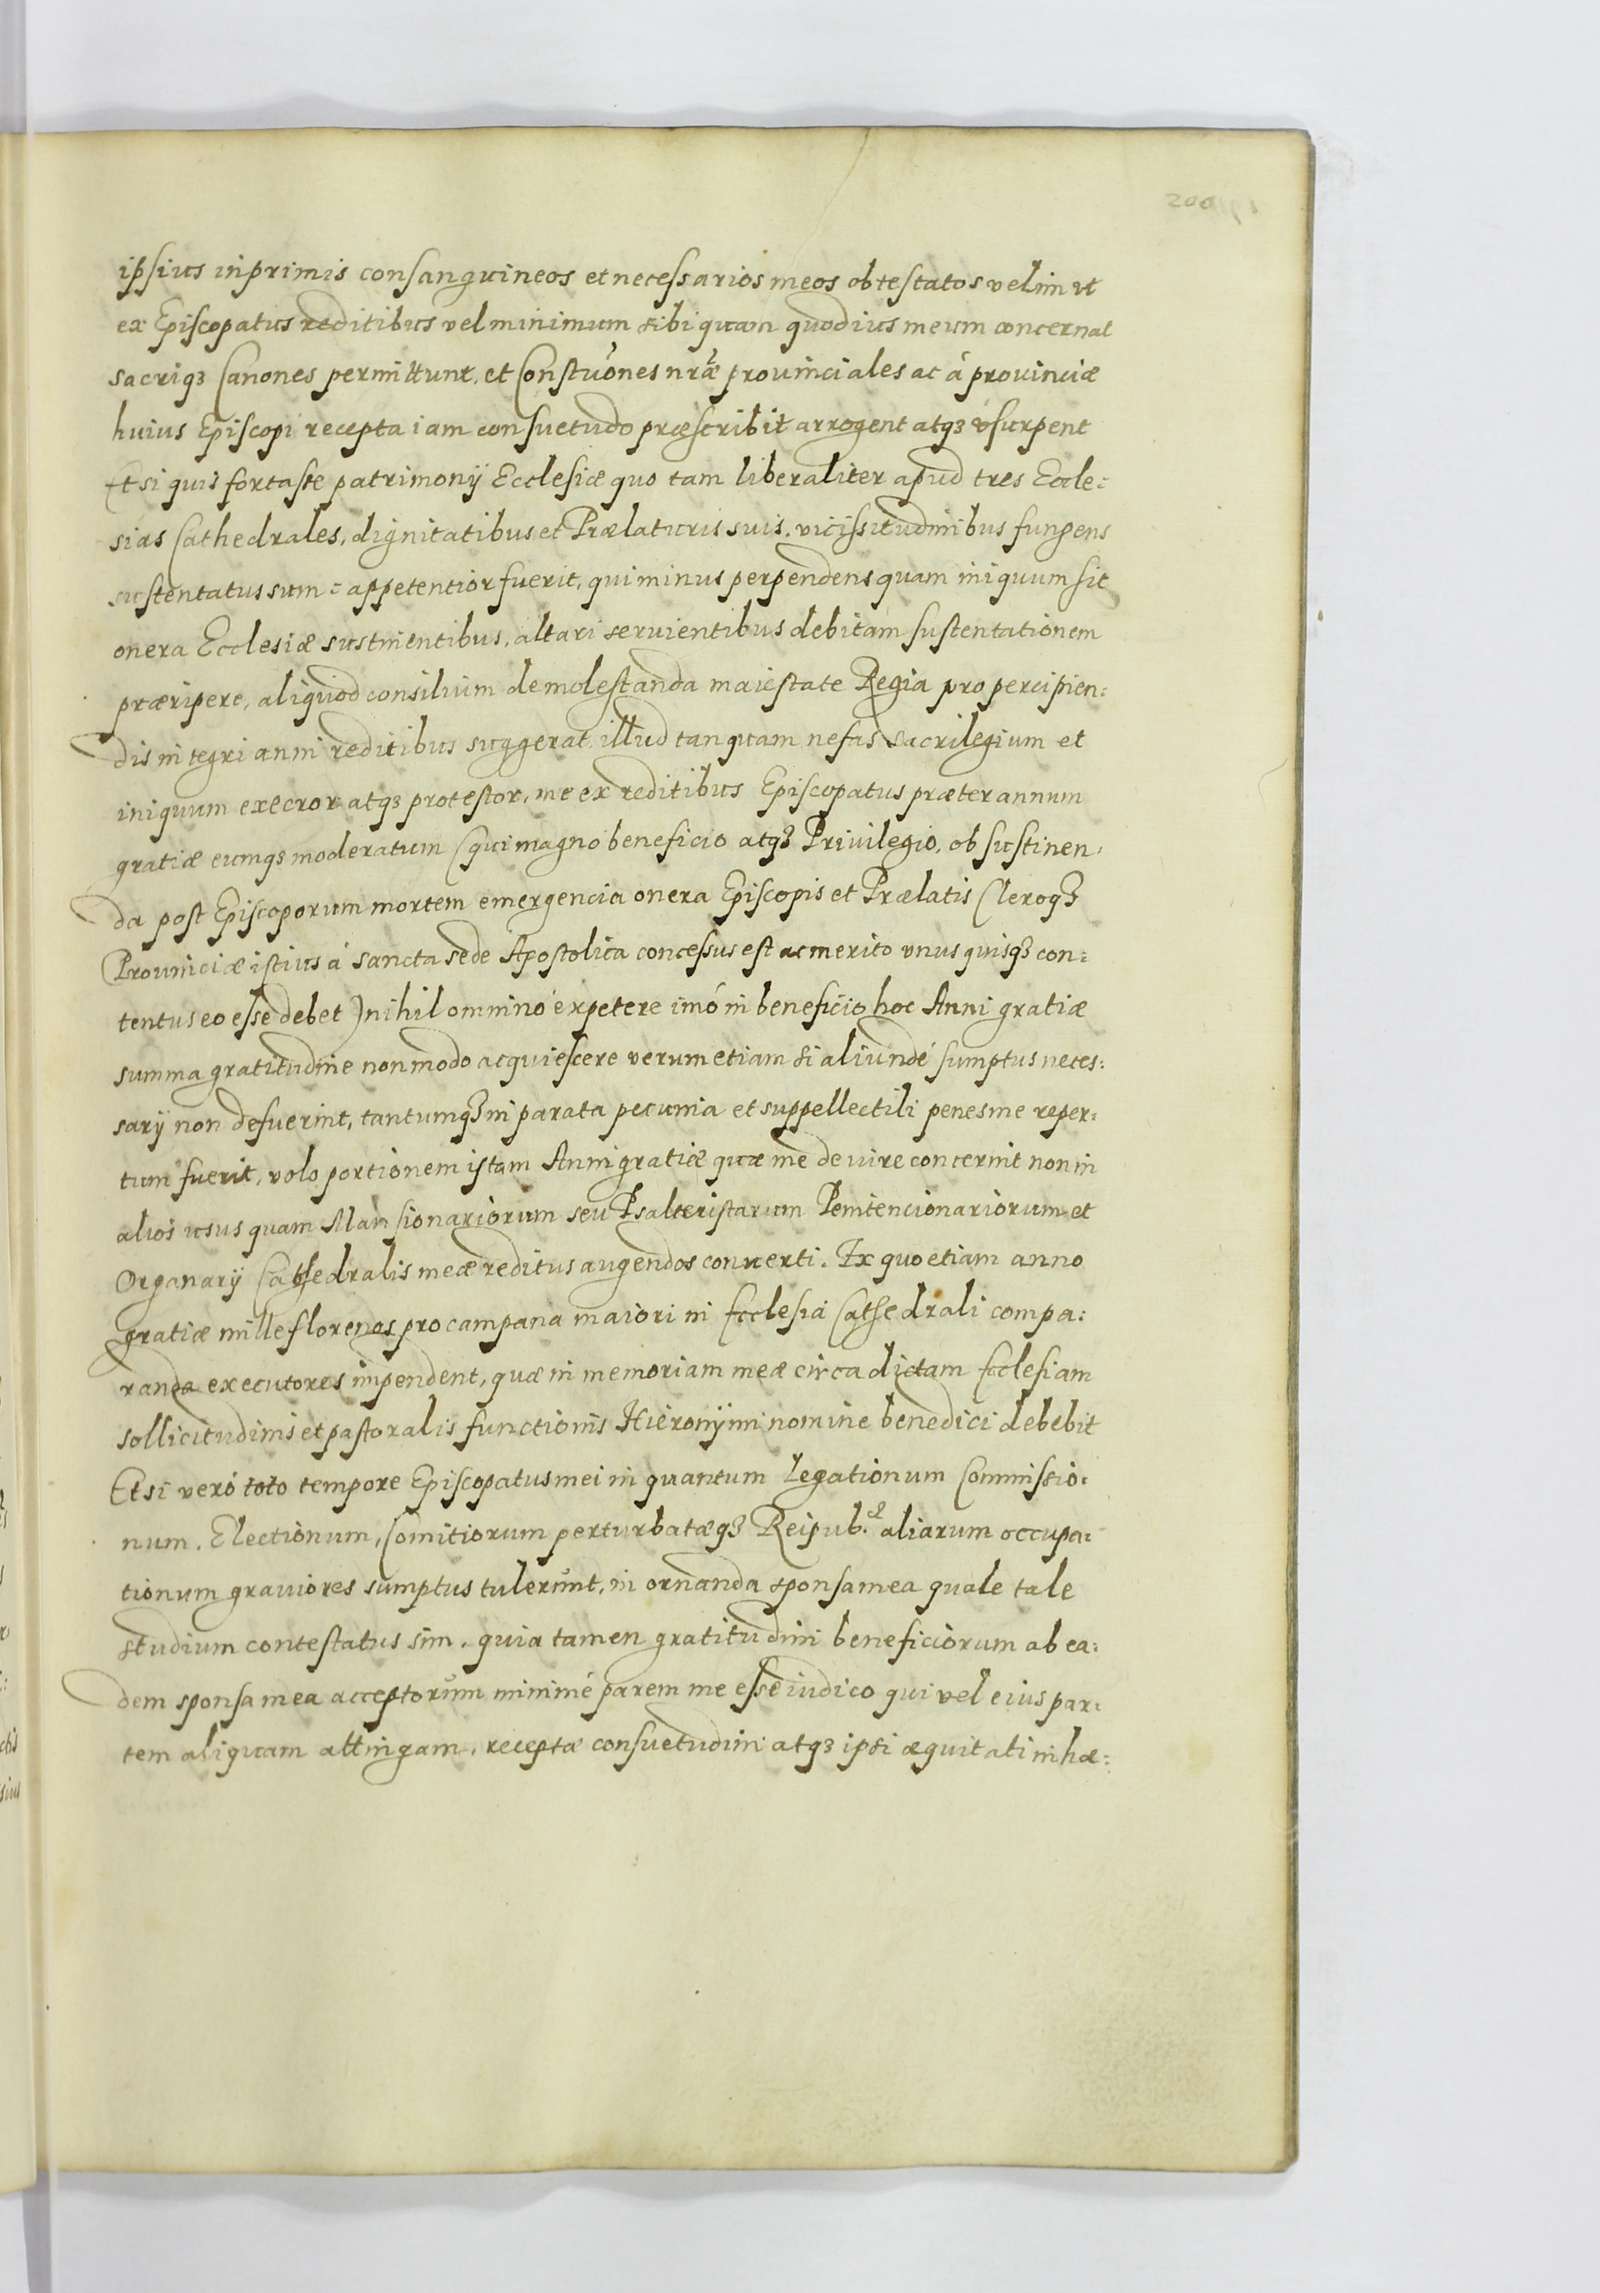 ipsius inprimis consanguineos et necessarios meos obtestatos velim ut
ex Episcopatus reditibus vel minimum sibi quam quod ius meum concernat
sacriq3 Canones permittunt, et Constuónes nræ prouinciales ac à prouinciæ
huius Episcopi recepta iam consuetudo præscribit arrogent atq3 vsurpent
Et si quis fortasse patrimonij Ecclesiæ quo tam liberaliter apud tres Eccle:
sias Cathedrales, dignitatibus et Prælaturis suis, vicissitudinibus fungens
sustentatus sum: appetentior fuerit, qui minus perpendens quam iniquum sit
onera Ecclesiæ sustinentibus, altari seruientibus debitam sustentationem
præripere, aliquod consilium de molestanda maiestate Regia pro percipien:
dis integri anni reditibus suggerat, illud tanquam nefas sacrilegium et
iniquum execror atq3 protestor, me ex reditibus Episcopatus præter annum
gratiæ eumq3 moderatum (qui magno beneficio atq3 Priuilegio, ob sustinen:
da post Episcoporum mortem emergencia onera Episcopis et Prælatis Cleroq3
Prouinciæ istius á sancta sede Apostolica concessus est ac merito vnusquisq3 con:
tentus eo esse debet) nihil omnino expetere imó in beneficio hoc Anni gratiæ
summa gratitudine non modo acquiescere verum etiam si aliundé sumptus neces:
sarij non defuerint, tantumq3 in parata pecunia et suppellectili penes me reper:
tum fuerit, volo portionem istam Anni gratiæ quæ me de iure concernit non in
alios usus quam Mansionariorum seu Psalteristarum Penitencionariorum et
Organarij Cathedralis meæ reditus augendos conuerti. Ex quo etiam anno
gratiæ mille florenos pro campana maiori in Ecclesia Cathedrali compa:
randa executores impendent, quæ in memoriam meæ circa dictam Ecclesiam
sollicitudinis et pastoralis functionis Hieronymi nomine benedici debebit
Etsi veró toto tempore Episcopatus mei in quantum Legationum Commissio:
num, Electionum, Comitiorum perturbatæq3 Reipub. aliarum occupa:
tionum grauiores sumptus tulerunt, in ornanda sponsa mea quale tale
studium contestatus sim, quia tamen gratitudini beneficiorum ab ea:
dem sponsa mea acceptorum minimé parem me esse iudico qui vel eius par:
tem aliquam attingam, receptæ consuetudini atq3 ipsi æquitati inhæ: